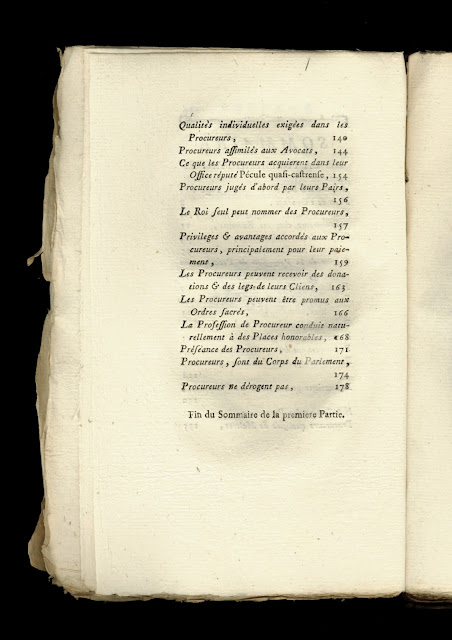 Qualités individuelles exigées dans les
Procureurs, 140
Procureurs assimilés aux Avocats, 144
Ce que les Procureurs acquierent dans leur
Office réputé Pécule quasi-castrense, 154
Procureurs jugés d'abord par leurs Pairs,
156
Le Roi seul peut nommer des Procureurs,
157
Privileges & avantages accordés aux Pro-
cureurs, principalement pour leur paie-
ment, 159
Les Procureurs peuvent recevoir des dona-
tions & des legs de leurs Cliens, 163
Les Procureurs peuvent être promus aux
Ordres sacrés, 166
La Profession de Procureur conduit natu-
rellement à des Places honorables, 168
Préséance des Procureurs, 171
Procureurs, sont du Corps du Parlement,
174
Procureurs ne dérogent pas, 178
Fin du Sommaire de la premiere Partie.